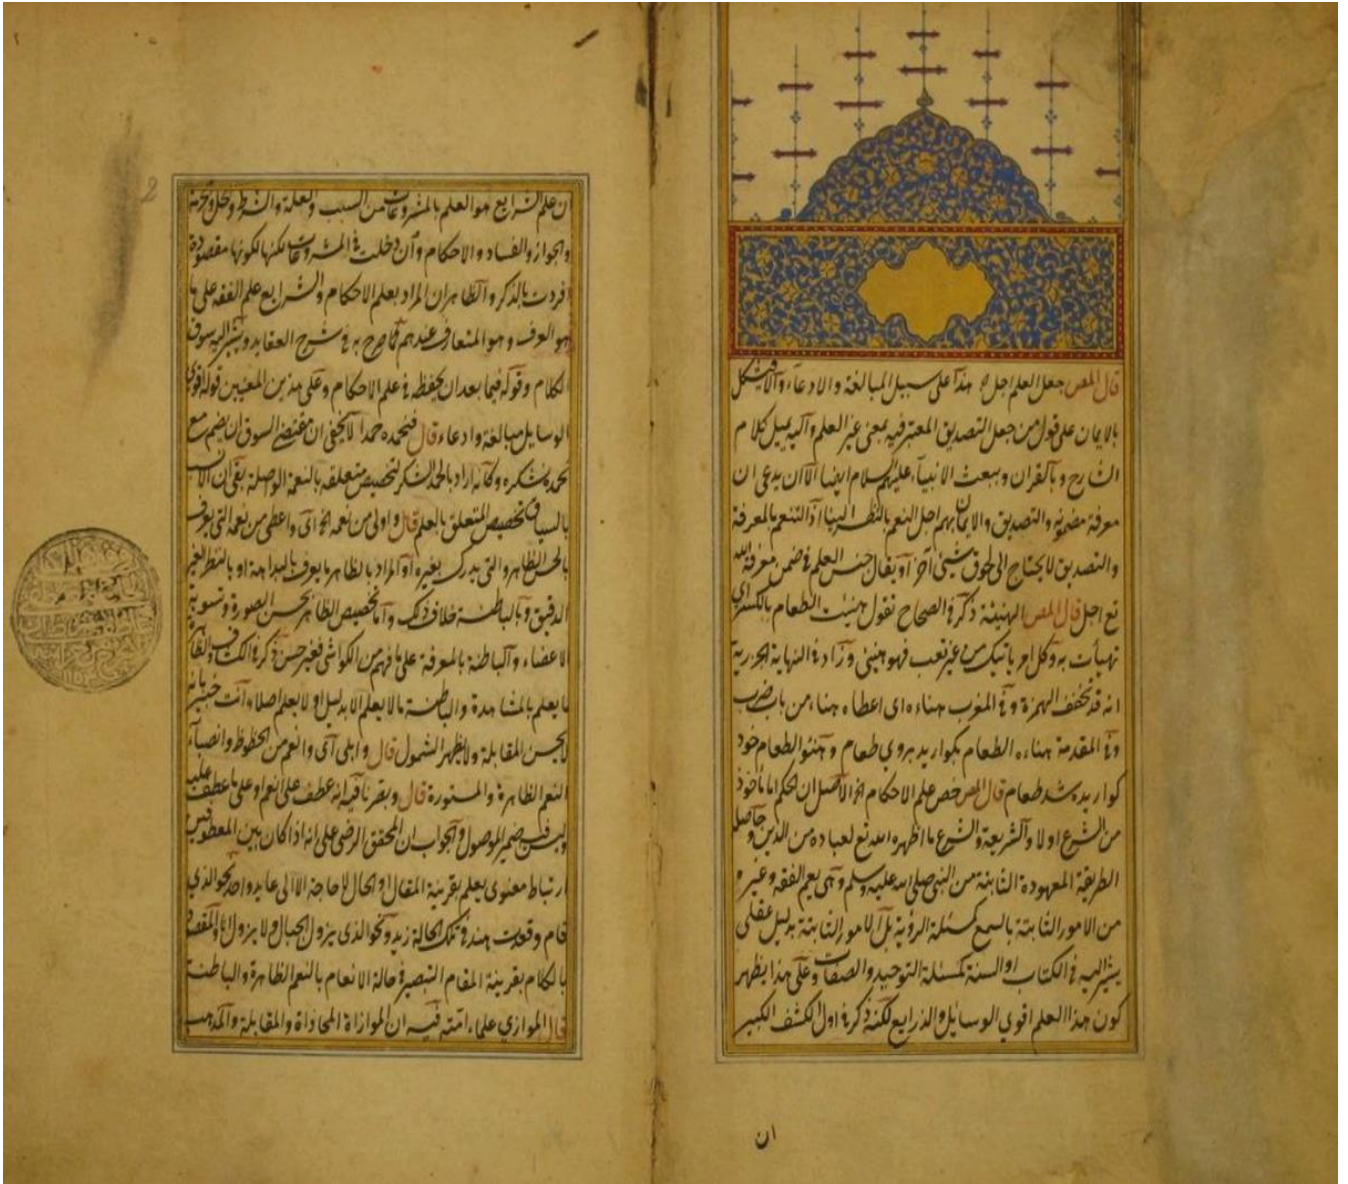 قال المص جعل العلم اجل اه هذا على سبيل المبالغة والادعاء والا فيشكل
بالايمان على قول من جعل التصديق المعتبر فيه بمعنى غير العلم واليه يميل كلام
الشارح وبالقران وببعث الانبياء عليهم السلام ايضا الا ان يدعى ان
معرفة مضمونه والتصديق والايمان بهم اجل النعم بالنظر الينا اذ التنعم بالمعرفة
والتصديق لا يحتاج الى لحوق شيئ آخر او يقال جنس العلم في ضمن معرفة الله
تع اجل قال المص الهنيئة ذكر في الصحاح تقول هنيت الطعام بالكسر اي
تهيأت به وكل امر ياتيك من غير تعب فهو هنيئ وزاد في النهاية الجزرية
انه قد تخفف الهمزة وفي المغرب هناءه اي اعطاه هناء من باب ضرب
وفي المقدمة هناءه الطعام بكواريد بروي طعام وهنئو الطعام خود
كواريده شد طعام قال المص خص علم الاحكام اه الاصل ان الحكم اما ماخوذ
من الشرع اولا والشريعة والشرع ما اظهره الله تع لعباده من الدين وحاصله
الطريقة المعهودة الثابتة من النبي صلى الله عليه وسلم وهي يعم الفقه وغيره
من الامور الثابتة بالسمع كمسئلة الرؤية بل الامور الثابتة بدليل عقلى
يشير اليه في الكتاب او السنة كمسئلة التوحيد والصفات وعلى هذا يظهر
كون هذا العلم اقوى الوسايل والذرايع لكنه ذكر في اول الكشف الكبير
ان
ان علم الشرايع هو العلم بالمشروعات من السبب والعلة والشرط والحل والحرمة
والجواز والفساد والاحكام وان دخلت في المشروعات لكنها لكونها مقصودة
افردت بالذكر والظاهر ان المراد بعلم الاحكام والشرايع علم الفقه على ما
هو العرف وهو المتعارف عندهم كما صرح به في شرح العقايد ويشير اليه سوق
الكلام وقوله فيما بعد ان يحفظه في علم الاحكام وعلى هذين المعنيين قوله اقوى
الوسايل مبالغة وادعاء قال فنحمده حمدا لا يخفى ان مقتضى السوق ان يضم مع
نحمده نشكره وكانه اراد بالحمد الشكر لتخصيص متعلقه بالنعمة الواصلة بقي ان الانسب
بالسياق تخصيص المتعلق بالعلم قال واولى من نعمه اه اي واعطى من نعمه التي يعرف
بالحس الظاهر والتي يدرك بغيره او المراد بالظاهر ما يعرف بالبداهة او بالنظر الغير
الدقيق وبالباطنة خلاف ذلك واما تخصيص الظاهر بحسن الصورة وتسوية
الاعضاء والباطنة بالمعرفة على ما فهم من الكواشي فغير حسن ذكر في الكشاف والظاهرة
ما يعلم بالمشاهدة والباطنة ما لا يعلم الا بدليل او لا يعلم اصلا وانت خبير بانه
لا يحسن المقابلة ولا يظهر الشمول قال وابلى اي وانعم من الحظوظ وانصباء
النعم الظاهرة والمستورة قال وبقر ما فيه انه عطف على انعم او على ما عطف عليه
وليس فيه ضمير الموصول والجواب ان المحقق الرضى على انه اذا كان بين المعطوفين
ارتباط معنوى يعلم بقرينة المقال او الحال لا حاجة الا الى عايد واحد نحو الذى
قام وقعدت هند في تلك الحالة زيد ونحو الذى يزول الجبال ولا يزول انا والمقصود
بالكلام بقرينة المقام التبصير في حالة الانعام بالنعم الظاهرة والباطنة
قال الموازي علماء امته فيه ان الموازاة المحاذاة والمقابلة والمذهب